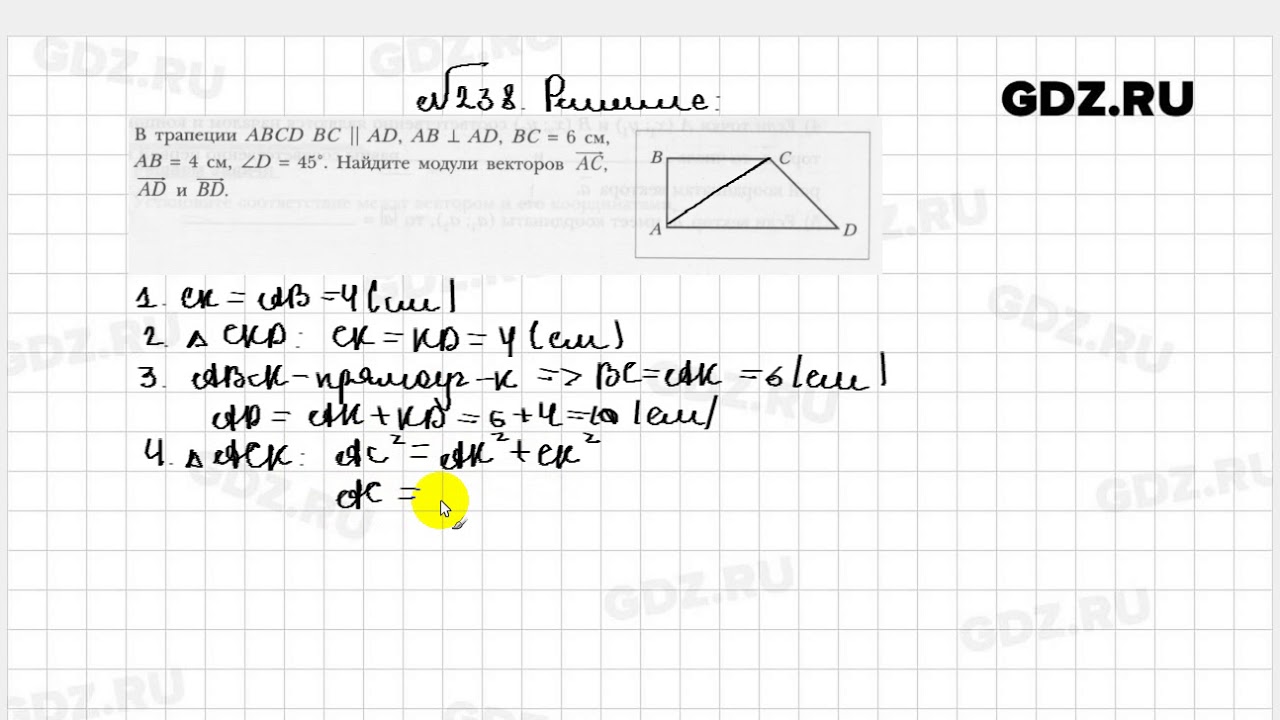 GDZ.RU
№238. Решение:
В трапеции ABCD BC || AD, AB ⊥ AD, BC = 6 см,
AB = 4 см, ∠D = 45°. Найдите модули векторов AC,
AD и BD.
B C
A D
1. CK = AB = 4 (см)
2. △ CKD: CK = KD = 4 (см)
3. ABCK – прямоуг-к => BC = AK = 6 (см)
AD = AK + KD = 6 + 4 = 10 (см)
4. △ ACK: AC² = AK² + CK²
AC =